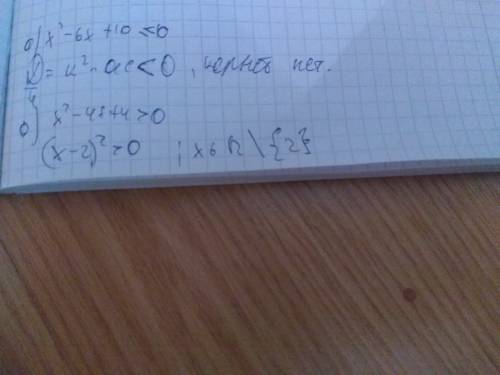 а) x² - 6x + 10 ≤ 0
D/4 = к² - ac < 0, корней нет.
б) x² - 4x + 4 > 0
(x - 2)² > 0 ; x ∈ R \ {2}